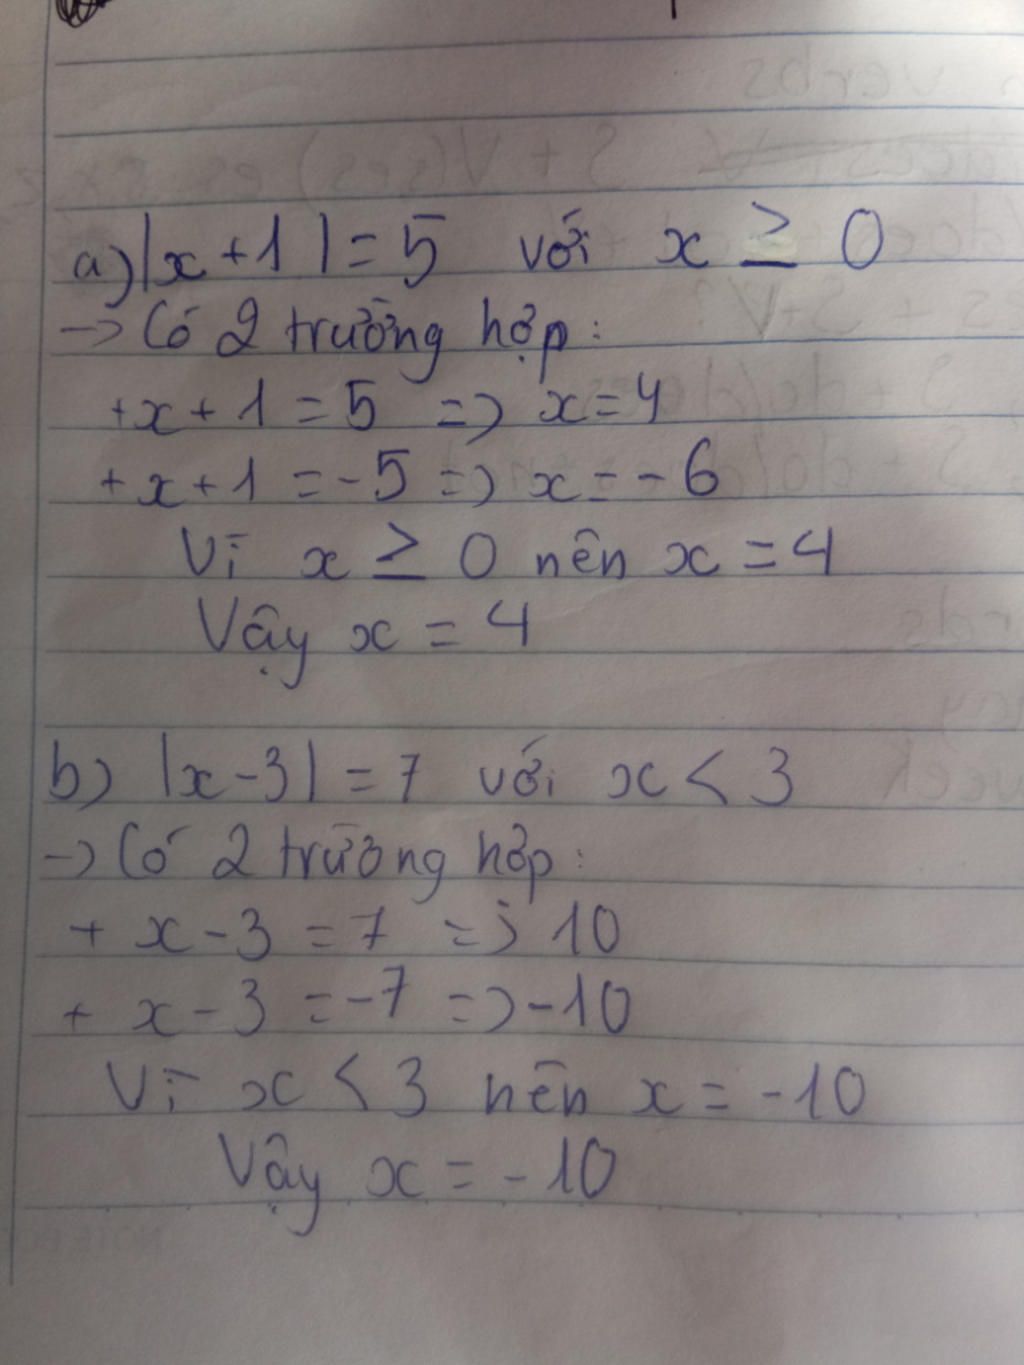 a) |x+1| = 5 với x ≥ 0
-> Có 2 trường hợp:
+x+1 = 5 => x=4
+x+1 = -5 => x=-6
Vì x ≥ 0 nên x = 4
Vậy x = 4
b) |x-3| = 7 với x < 3
-> Có 2 trường hợp:
+ x-3 = 7 => 10
+ x-3 = -7 => -10
Vì x < 3 nên x = -10
Vậy x = -10